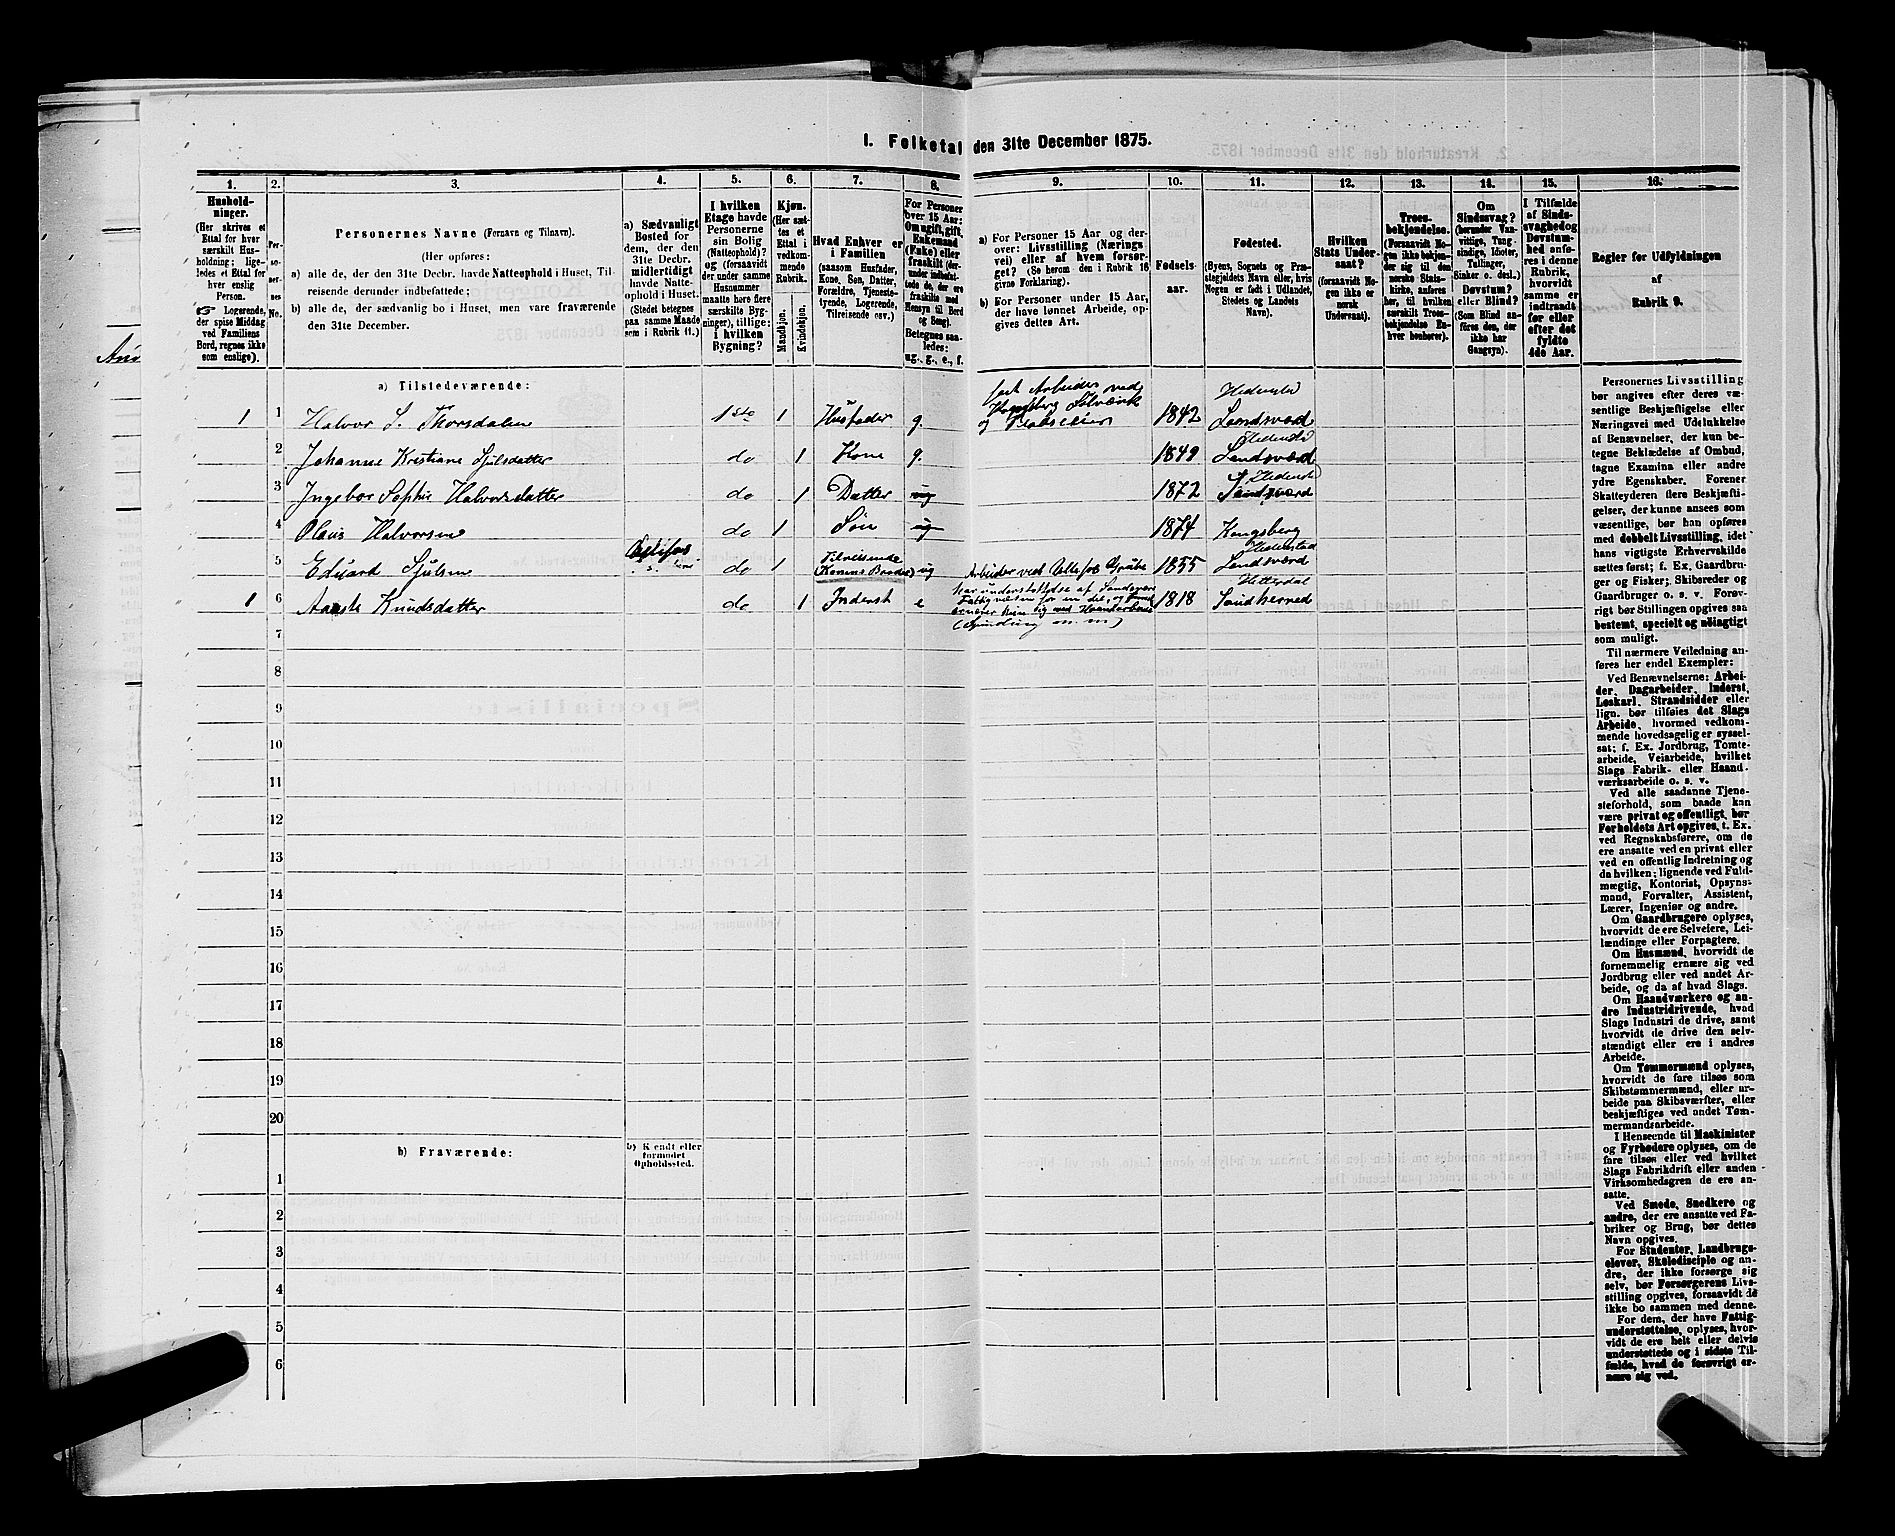 I. Folketal den 31te December 1875.
1. 2. 3. 4. 5. 6. 7. 8. 9. 10. 11. 12. 13. 14. 15. 16.
Hushold-
ninger.
(Her skrives et
Ettal for hver
særskilt Hus-
holdning; lige-
ledes et Ettal for
hver enslig
Person.
☞ Logerende,
der spise Middag
ved Familiens
Bord, regnes ikke
som enslige).
Per-
so-
ner-
nes
No.
Personernes Navne (Fornavn og Tilnavn).
(Her opføres:
a) alle de, der den 31te Decbr. havde Natteophold i Huset, Til-
reisende derunder indbefattede;
b) alle de, der sædvanlig bo i Huset, men vare fraværende
den 31te December.
a) Sædvanligt
Bosted for
dem, der den
31te Decbr.
midlertidigt
havde Natte-
ophold i Huset.
(Stedet betegnes
paa samme Maade
som i Rubrik 11.)
I hvilken
Etage havde
Personerne
sin Bolig
(Natteophold)?
og (forsaavidt
der under samme
Husnummer
maatte høre flere
særskilte Byg-
ninger), tillige:
i hvilken
Bygning?
Kjøn.
(Her sæt-
tes et
Ettal i
vedkom-
mende
Rubrik.
Mandkjøn.
Kvindekjøn.
Hvad Enhver er
i Familien
(saasom Husfader,
Kone, Søn, Datter,
Forældre, Tjeneste-
tyende, Logerende,
Tilreisende osv.)
For Personer
over 15 Aar:
Om ugift, gift,
Enkemand
(Enke) eller
fraskilt (der-
under indbefat-
tede de, der ere
fraskilte med
Hensyn til Bord
og Seng).
Betegnes saa-
ledes:
ug., g., e., f.
a) For Personer 15 Aar og der-
over: Livsstilling (Nærings
vei) eller af hvem forsør-
get? (Se herom den i Rubrik 16
givne Forklaring).
b) For Personer under 15 Aar,
der have lønnet Arbeide, op-
gives dettes Art.
Fødsels-
aar.
Fødested.
(Byens, Sognets og Præ-
stegjeldets Navn eller, hvis
Nogen er født i Udlandet,
Stedets og Landets
Navn).
Hvilken
Stats Under-
saat?
(forsaavidt No-
gen ikke er
norsk
Undersaat).
Troes-
bekjendelse.
(Forsaavidt No-
gen ikke bekjen-
der sig til den
norske Stats-
kirke, anføres
her, til hvilken
særskilt Troes-
bekjendelse En-
hver henhører).
Om
Sindssvag?
(herunder Van-
vittige, Tung-
sindige, Idioter,
Tullinger,
Sinker o. desl.)
Døvstum?
eller Blind?
(Som Blind an-
føres den, der
ikke har
Gangsyn).
I Tilfælde
af Sinds-
svaghed og
Døvstum-
hed anfø-
res i denne
Rubrik,
hvorvidt
samme er
indtraadt
før eller
efter det
fyldte
4de Aar.
Regler for Udfyldningen
af
Rubrik 9.
a) Tilstedeværende:
1 1 Halvor S. Thorsdalen 1ste 1 Husfader g. fast Arbeider ved
Kongsberg Sølvværk
og 1842 Hedensted
Sandsværd
2 Johanne Kristiane Sjulsdatter do 1 Kone g. 1849 Hedensted
Sandsværd
3 Ingebor Sophie Halvorsdatter do 1 Datter ug 1872 Hedensted
Sandsværd
4 Olaus Halvorsen do 1 Søn ug 1874 Kongsberg
5 Eduard Sjulsen do 1 Tilreisende
(Konens Broder) ug Arbeider ved Grube 1855 Hedenstad
Sandsværd
1 6 Aaste Knudsdatter do 1 Inderst e har understøttelse af Sandsvær
Fattigvæsen for en del, og
ernærer hun sig med Haandarbeide
(Spinding m. m) 1818 Hitterdal
7
8
9
10
11
12
13
14
15
16
17
18
19
20
b) Fraværende:
b) Kjendt eller
formodet
Opholdssted.
1
2
3
4
5
6
Personernes Livsstilling
bør angives efter deres væ-
sentlige Beskjæftigelse eller
Næringsvei med Udelukkelse
af Benævnelser, der kun be-
tegne Beklædelse af Ombud,
tagne Examina eller andre
ydre Egenskaber. Forener
Skatteyderen flere Beskjæfti-
gelser, der kunne ansees som
væsentlige, bør han opføres
med dobbelt Livsstilling, idet
hans vigtigste Erhvervskilde
sættes først; f. Ex. Gaardbru-
ger og Fisker; Skibsreder og
Gaardbruger o. s. v. Forøv-
rigt bør Stillingen opgives saa
bestemt, specielt og nøiagtigt
som muligt.
Til nærmere Veiledning an-
føres her endel Exempler:
Ved Benævnelserne: Arbei-
der, Dagarbeider, Inderst,
Løskarl, Strandsidder eller
lign. bør tilføies det Slags
Arbeide, hvormed vedkom-
mende hovedsagelig er syssel-
sat; f. Ex. Jordbrug, Tomte-
arbeide, Veiarbeide, hvilket
Slags Fabrik- eller Haand-
værksarbeide o. s. v.
Ved alle saadanne Tjene-
steforhold, som baade kan
være privat og offentligt, bør
Forholdets Art opgives, t. Ex.
ved Regnskabsførere, om de
ere ansatte ved en privat eller
ved en offentlig Indretning og
da hvilken; lignende ved Fuld-
mægtig, Kontorist, Opsyns-
mand, Forvalter, Assistent,
Lærer, Ingeniør og andre.
Om Gaardbrugere oplyses,
hvorvidt de ere Selveiere, Lei-
lændinge eller Forpagtere.
Om Husmænd, hvorvidt de
fornemmelig ernære sig ved
Jordbrug eller ved andet Ar-
beide, og da af hvad Slags.
Om Haandværkere og an-
dre Industridrivende, hvad
Slags Industri de drive, samt
hvorvidt de drive den selv-
stændigt eller ere i andres
Arbeide.
Om Tømmermænd oplyses,
hvorvidt de fare tilsøs som
Skibstømmermænd, eller ar-
beide paa Skibsværfter, eller
beskjæftiges ved andet Tøm-
mermandsarbeide.
I Henseende til Maskinister
og Fyrbødere oplyses, om de
fare tilsøs eller ved hvilket
Slags Fabrikdrift eller anden
Virksomhedsgren de ere an-
satte.
Ved Smede, Snedkere og
andre, der ere ansatte ved Fa-
briker og Brug, bør dettes
Navn opgives.
For Studenter, Landbrugs-
elever, Skoledisciple og an-
dre, der ikke forsørge sig
selv, bør Forsørgerens Livs-
stilling opgives, forsaavidt de
ikke bo sammen med denne.
For dem, der have Fattig-
understøttelse, oplyses, hvor-
vidt de ere helt eller delvis
understøttede og i sidste Til-
fælde, hvad de forøvrigt er-
nære sig ved.